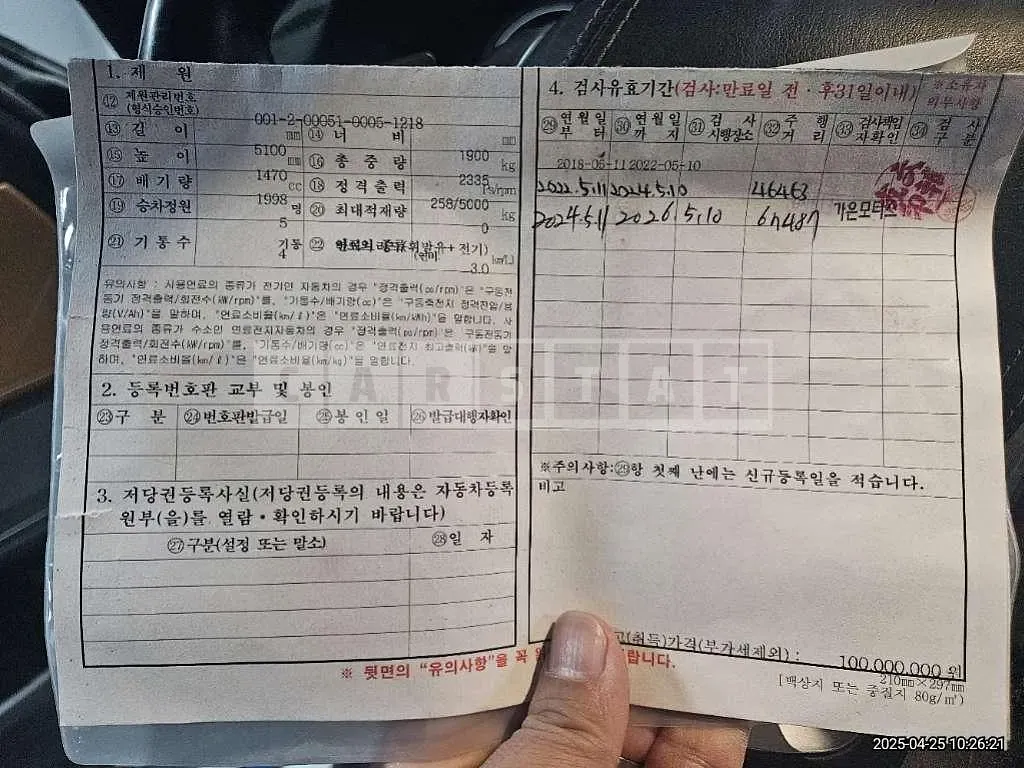 1. 제 원
⑫ 제원관리번호
(형식승인번호)
001-2-00051-0005-1218
⑬ 길 이
5100 mm
⑭ 너 비
1900 mm
⑮ 높 이
1470 mm
⑯ 총 중 량
2335 kg
⑰ 배 기 량
1998 cc
⑱ 정 격 출 력
258/5000 ps/rpm
⑲ 승차정원
5 명
⑳ 최대적재량
0 kg
㉑ 기 통 수
4 기통
㉒
휘발유+ 전기)
(연비
3.0 km/L)
유의사항 : 사용연료의 종류가 전기인 자동차의 경우 "정격출력(ps/rpm)"은 "구동전
동기 정격출력/회전수(kW/rpm)"를, "기통수/배기량(cc)"은 "구동축전지 정격전압/용
량(V/Ah)"을 말하며, "연료소비율(km/ℓ)"은 "연료소비율(km/kWh)"을 말합니다. 사
용연료의 종류가 수소인 연료전지자동차의 경우 "정격출력(ps/rpm)"은 구동전동기
정격출력/회전수(kW/rpm)"를, "기통수/배기량(cc)"은 "연료전지 최고출력(kW)"을 말
하며, "연료소비율(km/ℓ)"은 "연료소비율(km/kg)"을 말합니다.
2. 등록번호판 교부 및 봉인
㉓구 분 ㉔번호판발급일 ㉕봉 인 일 ㉖발급대행자확인
3. 저당권등록사실(저당권등록의 내용은 자동차등록
원부(을)를 열람・확인하시기 바랍니다)
㉗구분(설정 또는 말소) ㉘일 자
4. 검사유효기간(검사:만료일 전ㆍ후31일이내)
※소유자
의무사항
㉙연월일
부 터
㉚연월일
까 지
㉛검 사
시행장소
㉜주 행
거 리
㉝검사책임
자확인
㉞검 사
구 분
2018-05-11 2022-05-10
2022.5.11 2024.5.10 46463
2024.5.11 2026.5.10 67487 가은모터스
※주의사항:㉙항 첫째 난에는 신규등록일을 적습니다.
비고
CARSTAT
(취득)가격(부가세제외) : 100,000,000 원
210mm×297mm
[백상지 또는 중질지 80g/㎡)
※ 뒷면의 "유의사항"을 꼭 바랍니다.
2025-04-25 10:26:21